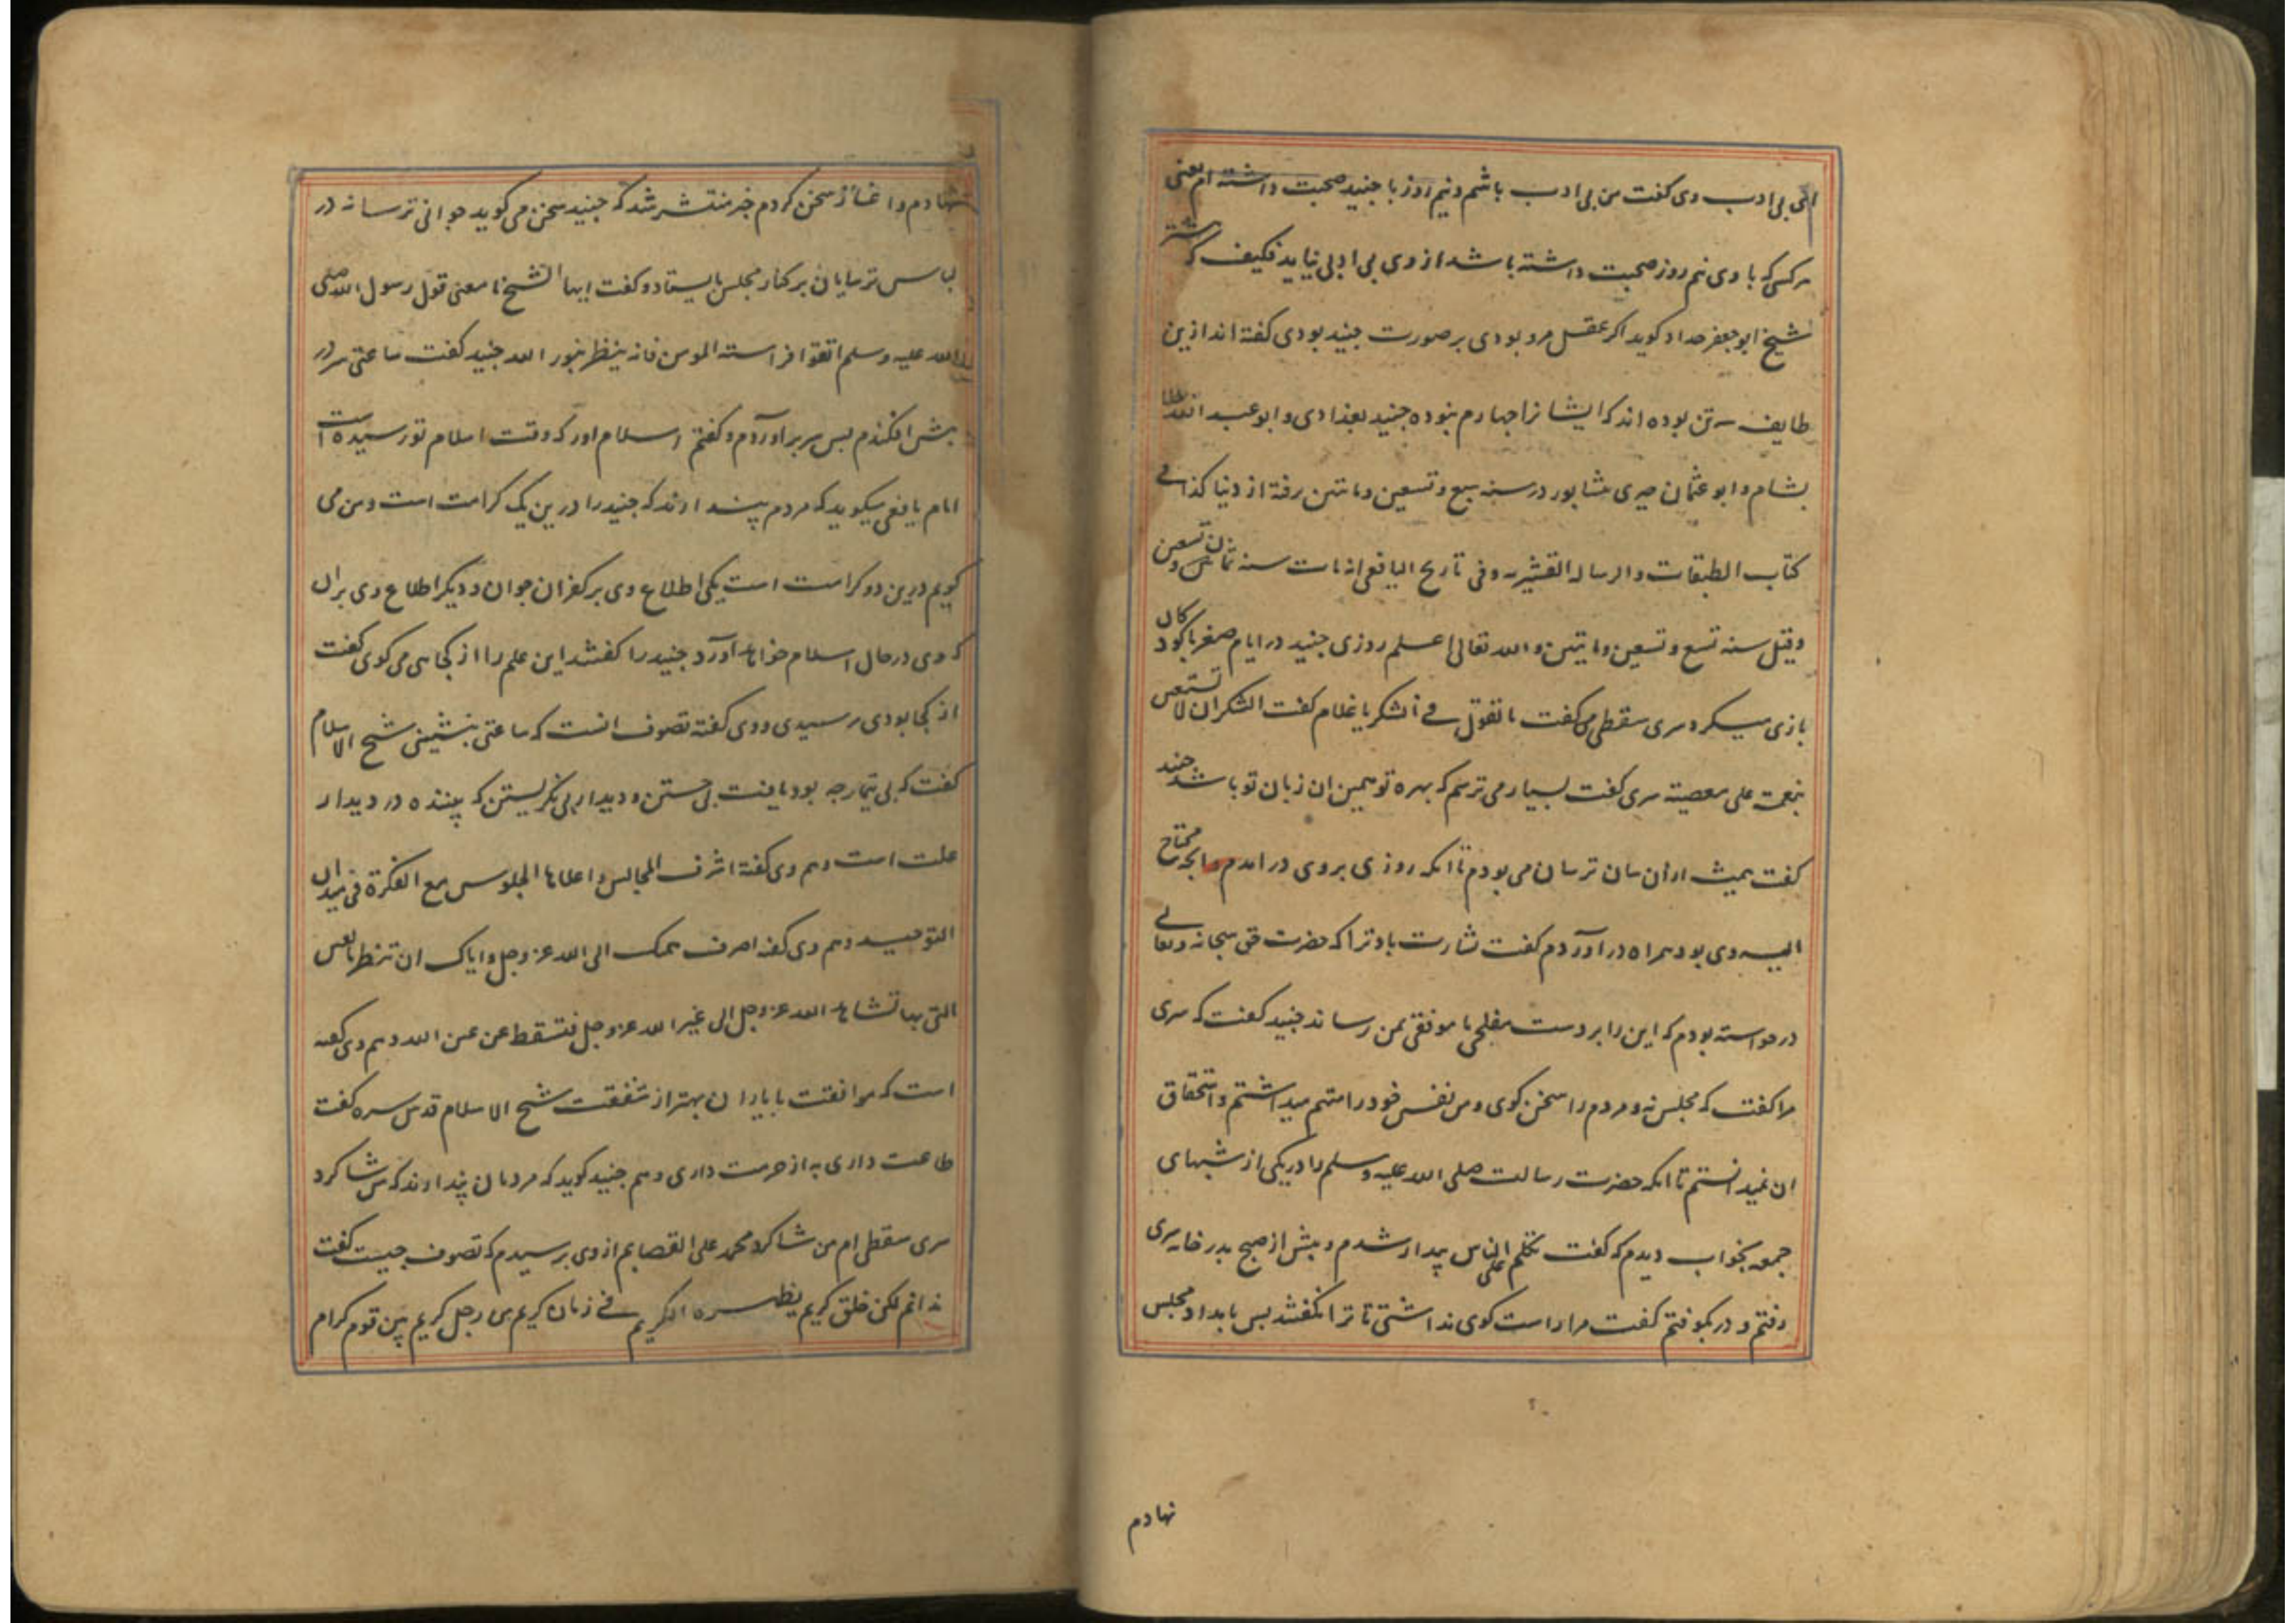 ای بی ادب وی گفت من بی ادب باشم و نیم روز با جنید صحبت داشته ام یعنی
هر کسی که با وی نیم روز صحبت داشته باشد از وی بی ادبی نیاید فکیف که بیشتر
شیخ ابو جعفر حداد کوید اکر عقل مرد بودی بر صورت جنید بودی کفته اند ازین
طایفه سه تن بوده اند که ایشانرا چهارم نبوده جنید ببغدادی و ابو عبد الله جلا
بشام و ابو عثمان حیری بنشابور در سنه سبع و تسعین و مائتین رفته از دنیا کذا فی
کتاب الطبقات و الرساله القشیریه و فی تاریخ الیافعی انه مات سنه ثمان و تسعین
وقیل سنه تسع و تسعین و مایتین و الله تعالی اعلم روزی جنید در ایام صغر با کودکان
بازی میکرد سری سقطی می گفت ما تقول فی الشکر یا غلام کفت الشکر ان لا تستعین
بنعمه علی معصیته سری کفت بسیار می ترسم که بهره تو همین ان زبان تو باشد جنید
کفت همیشه ازان سان ترسان می بودم تا انکه روزی بروی در امدم و انجه محتاج
الیه وی بود همراه در اوردم کفت بشارت باد ترا که حضرت حق سبحانه و تعالی
درخواسته بودم که این را بر دست مفلحی یا موفقی بمن رساند جنید کفت که سری
مرا کفت که مجلس نه و مردم را سخن کوی و من نفس خود را متهم میداشتم و استحقاق
ان نمیدانستم تا انکه حضرت رسالت صلی الله علیه و سلم را در یکی از شبهای
جمعه بخواب دیدم که کفت تکلم علی الناس بیدار شدم و بیش از صبح بدر خانه سری
رفتم و در بکوفتم کفت مرا راست کوی نداشتی تا ترا نکفتند بس بامداد مجلس
نهادم
نهادم و اغاز سخن کردم خبر منتشر شد که جنید سخن می کوید جوانی ترسا نه در
لباس ترسایان بر کنار مجلس بایستاد و کفت ایها الشیخ ما معنی قول رسول الله صلی
الله علیه و سلم اتقوا فراسته المومن فانه ینظر بنور الله جنید کفت ساعتی سر در
بیش افکندم بس سر بر اوردم و کفتم اسلام اور که وقت اسلام تو رسیده است
امام یافعی میکوید که مردم پندارند که جنید را درین یک کرامت است و من می
کویم درین دو کرامت است یکی اطلاع وی بر کفر ان جوان و دیکر اطلاع وی بران
که وی در حال اسلام خواهد آورد جنید را کفتند این علم را از کجا می کوی کفت
از کجا بودی برسیدی و وی کفته تصوف انست که ساعتی بنشینی شیخ الاسلام
کفت که بی تیمار چه بود یافت بی جستن و دیدار بی نکریستن که بیننده در دیدار
علت است و هم وی کفته اشرف المجالس و اعلاها الجلوس مع الفکرة فی میدان
التوحید و هم وی کفته اصرف همک الی الله عز و جل و ایاک ان تنظر بالعین
التی بها تشاهد الله عز و جل الی غیر الله عز و جل فتسقط عن عین الله و هم وی کفته
است که موافقت با یاران بهتر از شفقت شیخ الاسلام قدس سره کفت
طاعت داری به از حرمت داری و هم جنید کوید که مردمان پندارند که من شاکرد
سری سقطی ام من شاکرد محمد علی القصابم از وی برسیدم که تصوف چیست کفت
ندانم لکن خلق کریم یظهره الکریم فی زمان کریم من رجل کریم بین قوم کرام